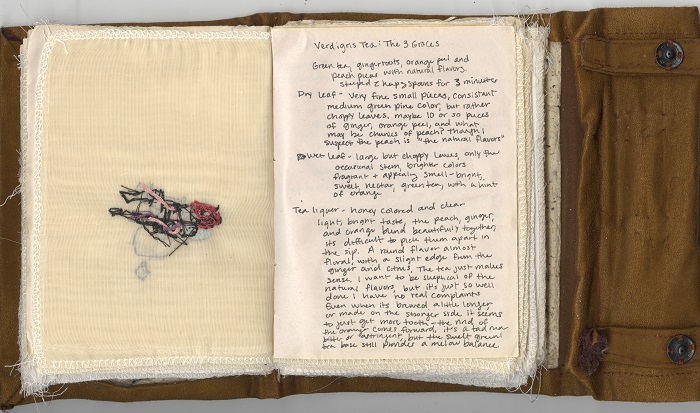 Verdigris Tea: The 3 Graces
Green tea, ginger roots, orange peel and
peach pieces with natural flavors.
steeped 2 heapy spoons for 3 minutes
Dry leaf - Very fine small pieces, consistant
medium green pine color, but rather
choppy leaves, maybe 10 or so pieces
of ginger, orange peel, and what
may be chunks of peach? though I
suspect the peach is "the natural flavors"
Wet leaf - large but choppy leaves, only the
occasional stem, brighter colors
fragrant + appealing smell - bright,
sweet, nectar, green tea, with a hint
of orange
Tea liquor - honey colored and clear
light, bright taste, the peach, ginger,
and orange blend beautifully together,
its difficult to pick them apart in
the sip. A round flavor almost
floral, with a slight edge from the
ginger and citrus, The tea just makes
sense. I want to be skeptical of the
natural flavors, but it's just so well
done I have no real complaints
Even when its brewed a little longer
or made on the stronger side it seems
to just get more tooth - the rind of
the orange comes forward, it's a tad more
bitter or astringent, but the sweet green
tea base still provides a mellow balance